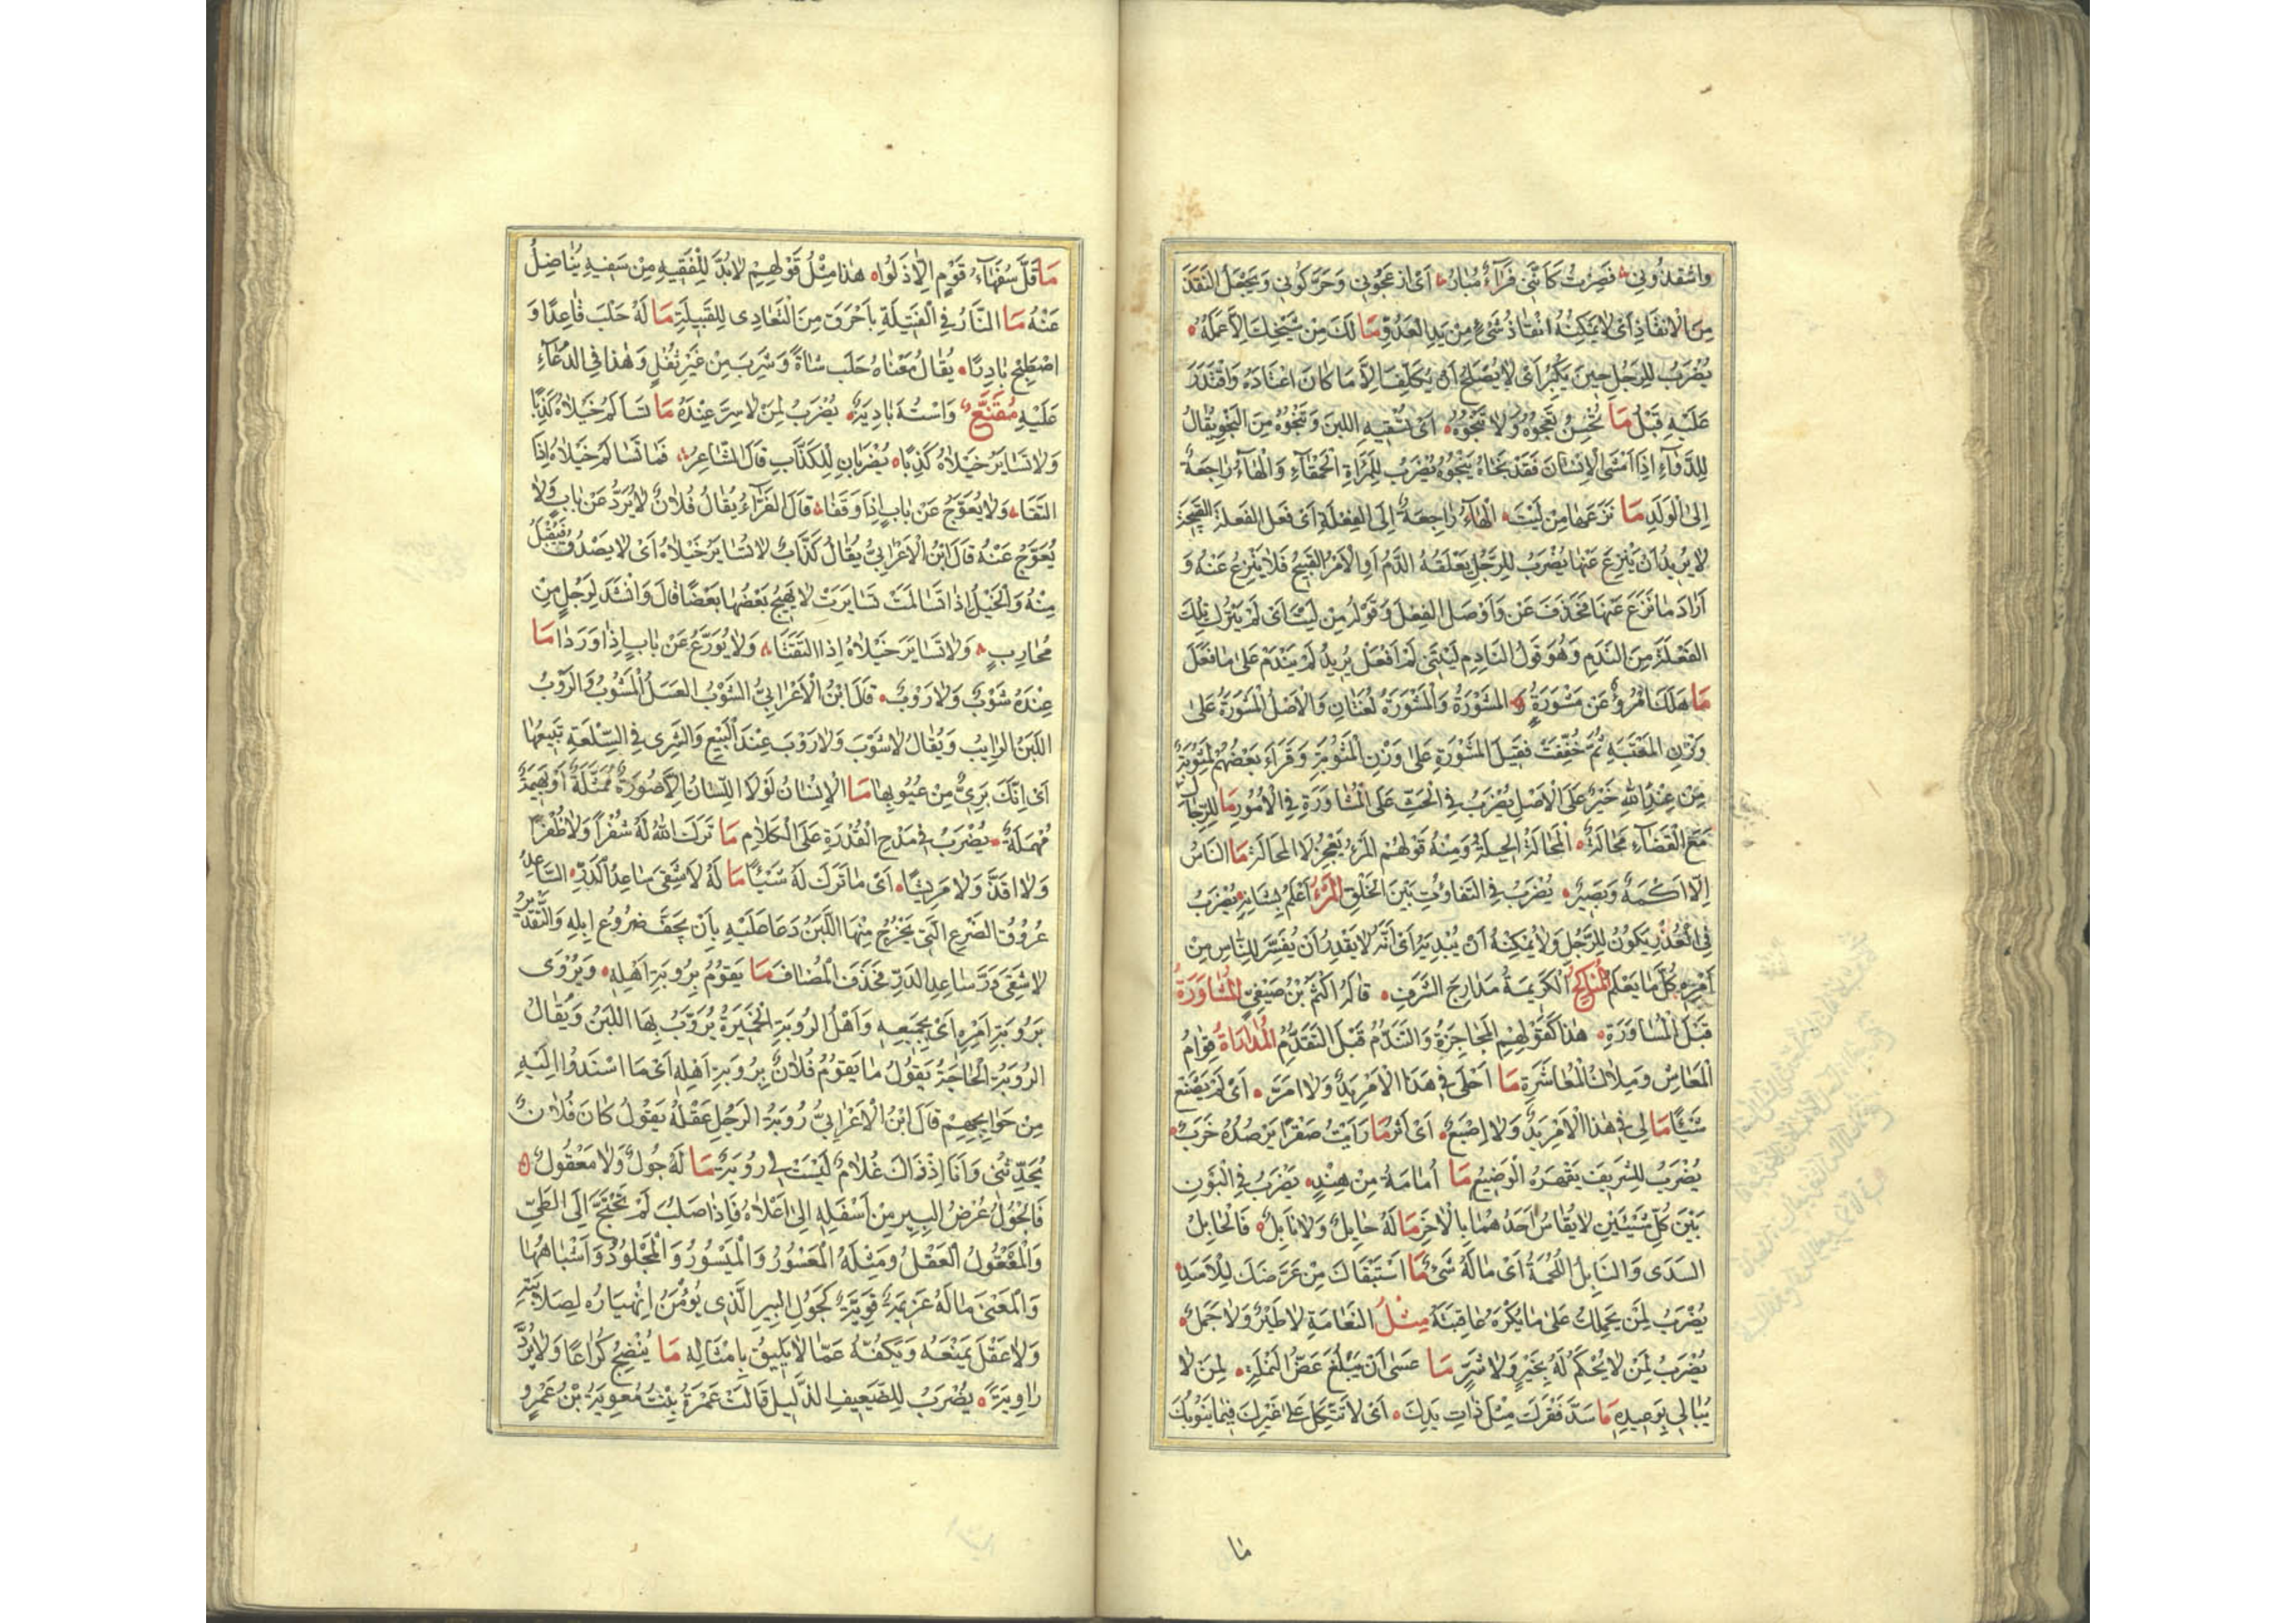 واسْفِدُونِي فَصِرْتُ كَأَنَّنِي فَرَاءٌ مُبَارُ أَيْ ازعجوني وحَرَّكُوني ويجعل النَّقَدَ
مِنَ الْاِنقاذِ أَيْ لا يُمكِنُهُ انْقاذُ شَيْءٍ مِنْ يَدِ العَدُوِّ مَا لَكَ مِنْ شَيْخِكَ اِلَّا عَمَلُهُ
يُضْرَبُ لِلرَّجُلِ حِينَ يَكْبُرُ أَيْ لا يَصْلُحُ أَنْ يُكَلَّفَ اِلَّا مَا كَانَ اعْتَادَهُ وَاقْتَدَرَ
عَلَيْهِ قَبْلُ مَا تُحْسِنُ تَعْجُوهُ وَلَا تَنْجُوهُ أَيْ تَسْقِيهِ اللبَنَ وَتَنْجُوهُ مِنَ النَّجْوِ يُقَالُ
لِلدَّوَاءِ اِذَا أَمْشَى الْاِنْسَانَ فَقَدْ نَجَاهُ يَنْجُوهُ يُضْرَبُ لِلْمَرْأَةِ الْحَمْقَاءِ وَالْهَاءُ رَاجِعَةٌ
اِلَى الْوَلَدِ مَا نَزَعَهَا مِنْ لَيْتَ الْهَاءُ رَاجِعَةٌ اِلَى الفِعْلَةِ أَيْ فَعَلَ الفَعْلَةَ القَبِيحَةَ
لا يُرِيدُ أَنْ يَنْزِعَ عَنْهَا يُضْرَبُ لِلرَّجُلِ يَعْلَقُهُ الذَّمُّ أَوِ الْاَمْرُ القَبِيحُ فَلا يَنْزِعُ عَنْهُ وَ
أَرَادَ مَا نَزَعَ عَنْهَا فَحَذَفَ عَنْ وَأَوْصَلَ الفِعْلَ وَقَوْلُهُ مِنْ لَيْتَ أَيْ لَمْ يَتْرُكْ تِلْكَ
الفَعْلَةَ مِنَ النَّدَمِ وَهُوَ قَوْلُ النَّادِمِ لَيْتَنِي لَمْ أَفْعَلْ يُرِيدُ لَمْ يَنْدَمْ عَلَى مَا فَعَلَ
مَا هَلَكَ امْرُؤٌ عَنْ مَشْوَرَةٍ المَشُورَةُ وَالْمَشْوَرَةُ لُغَتَانِ وَالْاَصْلُ الْمَشْوَرَةُ عَلَى
وَزْنِ المَعْتَبَةِ ثُمَّ خُفِّفَتْ فَقِيلَ المَشُورَةِ عَلَى وَزْنِ الْمَثُوبَةِ وَقَرَاءَ بَعْضُهُمْ لَمَثْوَبَةٌ
مِنْ عِنْدِ اللهِ خَيْرٌ عَلَى الْاَصْلِ يُضْرَبُ فِي الْحَثِّ عَلَى الْمُشَاوَرَةِ فِي الْاُمُورِ مَا لِلرِّجَالِ
مَعَ الْقَضَاءِ مَحَالَةٌ الْمَحَالَةُ الحِيلَةُ وَمِنْهُ قَوْلُهُمُ المَرْءُ يَعْجِزُ لَا المَحَالَةَ مَا النَّاسُ
اِلَّا أَكْمَهٌ وَبَصِيرٌ يُضْرَبُ فِي التَّفَاوُتِ بَيْنَ الخَلْقِ المَرْءُ أَعْلَمُ بِشَانِهِ يُضْرَبُ
فِي الْعُذْرِ يَكُونُ لِلرَّجُلِ وَلَا يُمْكِنُهُ أَنْ يُبْدِيَهُ أَيْ أَنَّهُ لا يَقْدِرُ أَنْ يُفَسِّرَ لِلنَّاسِ مِنْ
أَمْرِهِ كُلَّ مَا يَعْلَمُ الْمَنَاكِحُ الْكَرِيمَةُ مَدَارِجُ الشَّرَفِ قَالَهُ أَكْثَمُ بْنُ صَيْفِيٍّ المُشَاوَرَةُ
قَبْلَ الْمُسَاوَرَةِ هَذَا كَقَوْلِهِمِ المُحَاجَزَةُ وَالتَّنَدُّمُ قَبْلَ التَّقَدُّمِ المُدَارَاةُ قِوَامُ
الْمَعَاشِ وَمِلَاكُ الْمُعَاشَرَةِ مَا أَحْلَى فِي هَذَا الْاَمْرِ وَلَا أَمَرَّ أَيْ لَمْ يَصْنَعْ
شَيْئًا مَا لِي فِي هَذَا الْاَمْرِ يَدٌ وَلَا اِصْبَعٌ أَيْ أَثَرٌ مَا رَأَيْتُ صَقْرًا يَرْصُدُهُ خَرَبٌ
يُضْرَبُ لِلشَّرِيفِ يَقْهَرُهُ الْوَضِيعُ مَا أُمَامَةُ مِنْ هِنْدٍ يُضْرَبُ فِي الْبَوْنِ
بَيْنَ كُلِّ شَيْئَيْنِ لا يُقَاسُ أَحَدُهُمَا بِالْاٰخَرِ مَا لَهُ حَابِلٌ وَلَا نَابِلٌ فَالْحَابِلُ
السَّدَى وَالنَّابِلُ اللُّحْمَةُ أَيْ مَا لَهُ شَيْءٌ مَا اسْتَبْقَاكَ مَنْ عَرَّضَكَ لِلْاَسَدِ
يُضْرَبُ لِمَنْ يَحْمِلُكَ عَلَى مَا يُكْرَهُ عَاقِبَتُهُ مِثْلُ النَّعَامَةِ لَا طَيْرٌ وَلَا جَمَلٌ
يُضْرَبُ لِمَنْ لَا يُحْكَمُ لَهُ بِخَيْرٍ وَلَا شَرٍّ مَا عَسَى أَنْ يَبْلُغَ عَضُّ النَّمْلَةِ لِمَنْ لَا
يُبَالِي بِوَعِيدِهِ مَا سَدَّ فَقْرَكَ مِثْلُ ذَاتِ يَدِكَ أَيْ لَا تَتَّكِلْ عَلَى غَيْرِكَ فِيمَا يَنُوبُكَ
مَا
مَا قَلَّ سُفَهَاءُ قَوْمٍ اِلَّا ذَلُّوا هَذَا مِثْلُ قَوْلِهِمْ لَا بُدَّ لِلْفَقِيهِ مِنْ سَفِيهٍ يُنَاضِلُ
عَنْهُ مَا النَّارُ فِي الْفَتِيلَةِ بِأَحْرَقَ مِنَ التَّعَادِي لِلقَبِيلَةِ مَا لَهُ حَلَبَ قَاعِدًا وَ
اصْطَبَحَ بَارِدًا يُقَالُ مَعْنَاهُ حَلَبَ شَاةً وَشَرِبَ مِنْ غَيْرِ ثُفْلٍ وَهَذَا فِي الدُّعَاءِ
عَلَيْهِ مُقَنَّعٌ وَاسْتُهُ بَادِيَةٌ يُضْرَبُ لِمَنْ لَا سِرَّ عِنْدَهُ مَا تَسَالَمُ خَيْلَاهُ كَذِبًا
وَلَا تَسَايَرُ خَيْلَاهُ كَذِبًا يُضْرَبَانِ لِلْكَذَّابِ قَالَ الشَّاعِرُ فَمَا تَسَالَمُ خَيْلَاهُ اِذَا
التَقَتَا وَلَا يُعَوَّجُ عَنْ بَابٍ اِذَا وَقَفَا قَالَ الفَرَّاءُ يُقَالُ فُلَانٌ لَا يُرَدُّ عَنْ بَابٍ وَلَا
يُعَوَّجُ عَنْهُ قَالَ ابْنُ الْاَعْرَابِيِّ يُقَالُ كَذَّابٌ لَا تَسَايَرُ خَيْلَاهُ أَيْ لَا يَصْدُقُ فَيُقْبَلُ
مِنْهُ وَالْخَيْلُ اِذَا تَسَالَمَتْ تَسَايَرَتْ لَا يَهِيجُ بَعْضُهَا بَعْضًا قَالَ وَأَنْشَدَ لِرَجُلٍ مِنْ
مُحَارِبٍ وَلَا تَسَايَرُ خَيْلَاهُ اِذَا التَقَتَا وَلَا يُوَرَّعُ عَنْ بَابٍ اِذَا وَرَدَا مَا
عِنْدَهُ شَوْبٌ وَلَا رَوْبٌ قَالَ ابْنُ الْاَعْرَابِيِّ الشَّوْبُ العَسَلُ الْمَشُوبُ وَالرَّوْبُ
اللَّبَنُ الرَّايِبُ وَيُقَالُ لَا شَوْبَ وَلَا رَوْبَ عِنْدَ الْبَيْعِ وَالشِّرَى فِي السِّلْعَةِ تَبِيعُهَا
أَيْ اِنَّكَ بَرِيءٌ مِنْ عُيُوبِهَا مَا الْاِنْسَانُ لَوْلَا اللِّسَانُ اِلَّا صُورَةٌ مُمَثَّلَةٌ أَوْ بَهِيمَةٌ
مُهْمَلَةٌ يُضْرَبُ فِي مَدْحِ الْقُدْرَةِ عَلَى الْكَلَامِ مَا تَرَكَ اللهُ لَهُ شُفْرًا وَلَا ظُفْرًا
وَلَا أَقَذَّ وَلَا مَرِيشًا أَيْ مَا تَرَكَ لَهُ شَيْئًا مَا لَهُ لَا سُقِيَ سَاعِدُ الدَّرِّ السَّاعِدُ
عُرُوقُ الضَّرْعِ الَّتِي يَخْرُجُ مِنْهَا اللَّبَنُ دَعَا عَلَيْهِ بِأَنْ يَجِفَّ ضُرُوعُ اِبِلِهِ وَالتَّقْدِيرُ
لَا سُقِيَ دَرَّ سَاعِدِ الدَّرِّ فَحَذَفَ الْمُضَافَ مَا يَقُومُ بِرُوبَةِ أَهْلِهِ وَيُرْوَى
بِرُوبَةِ أَمْرِهِ أَيْ بِجَمِيعِهِ وَأَصْلُ الرُّوبَةِ الْخَمِيرَةُ يُرَوَّبُ بِهَا اللَّبَنُ وَيُقَالُ
الرُّوبَةُ الْحَاجَةُ يَقُولُ مَا يَقُومُ فُلَانٌ بِرُوبَةِ أَهْلِهِ أَيْ مَا اسْنَدُوا اِلَيْهِ
مِنْ حَوَايِجِهِمْ قَالَ ابْنُ الْاَعْرَابِيِّ رُوبَةُ الرَّجُلِ عَقْلُهُ يَقُولُ كَانَ فُلَانٌ
يُحَدِّثُنِي وَأَنَا اِذْ ذَاكَ غُلَامٌ لَيْسَتْ لِي رُوبَةٌ مَا لَهُ جُولٌ وَلَا مَعْقُولٌ
فَالْجُولُ عُرْضُ البِيرِ مِنْ أَسْفَلِهِ اِلَى أَعْلَاهُ فَاِذَا صَلُبَ لَمْ يَحْتَجْ اِلَى الطَّيِّ
وَالْمَعْقُولُ الْعَقْلُ وَمِثْلُهُ الْمَعْسُورُ وَالْمَيْسُورُ وَالْمَجْلُودُ وَأَشْبَاهُهَا
وَالْمَعْنَى مَا لَهُ عَزِيمَةٌ قَوِيَّةٌ كَجُولِ البِيرِ الَّذِي يُؤْمَنُ اِنْهِيَارُهُ لِصَلَابَتِهِ
وَلَا عَقْلٌ يَمْنَعُهُ وَيَكُفُّهُ عَمَّا لَا يَلِيقُ بِاَمْثَالِهِ مَا يُنْضِجُ كُرَاعًا وَلَا يَرُدُّ
رَاوِيَةً يُضْرَبُ لِلضَّعِيفِ الذَّلِيلِ قَالَتْ عَمْرَةُ بِنْتُ مُعٰوِيَةَ بْنِ عَمْرٍو